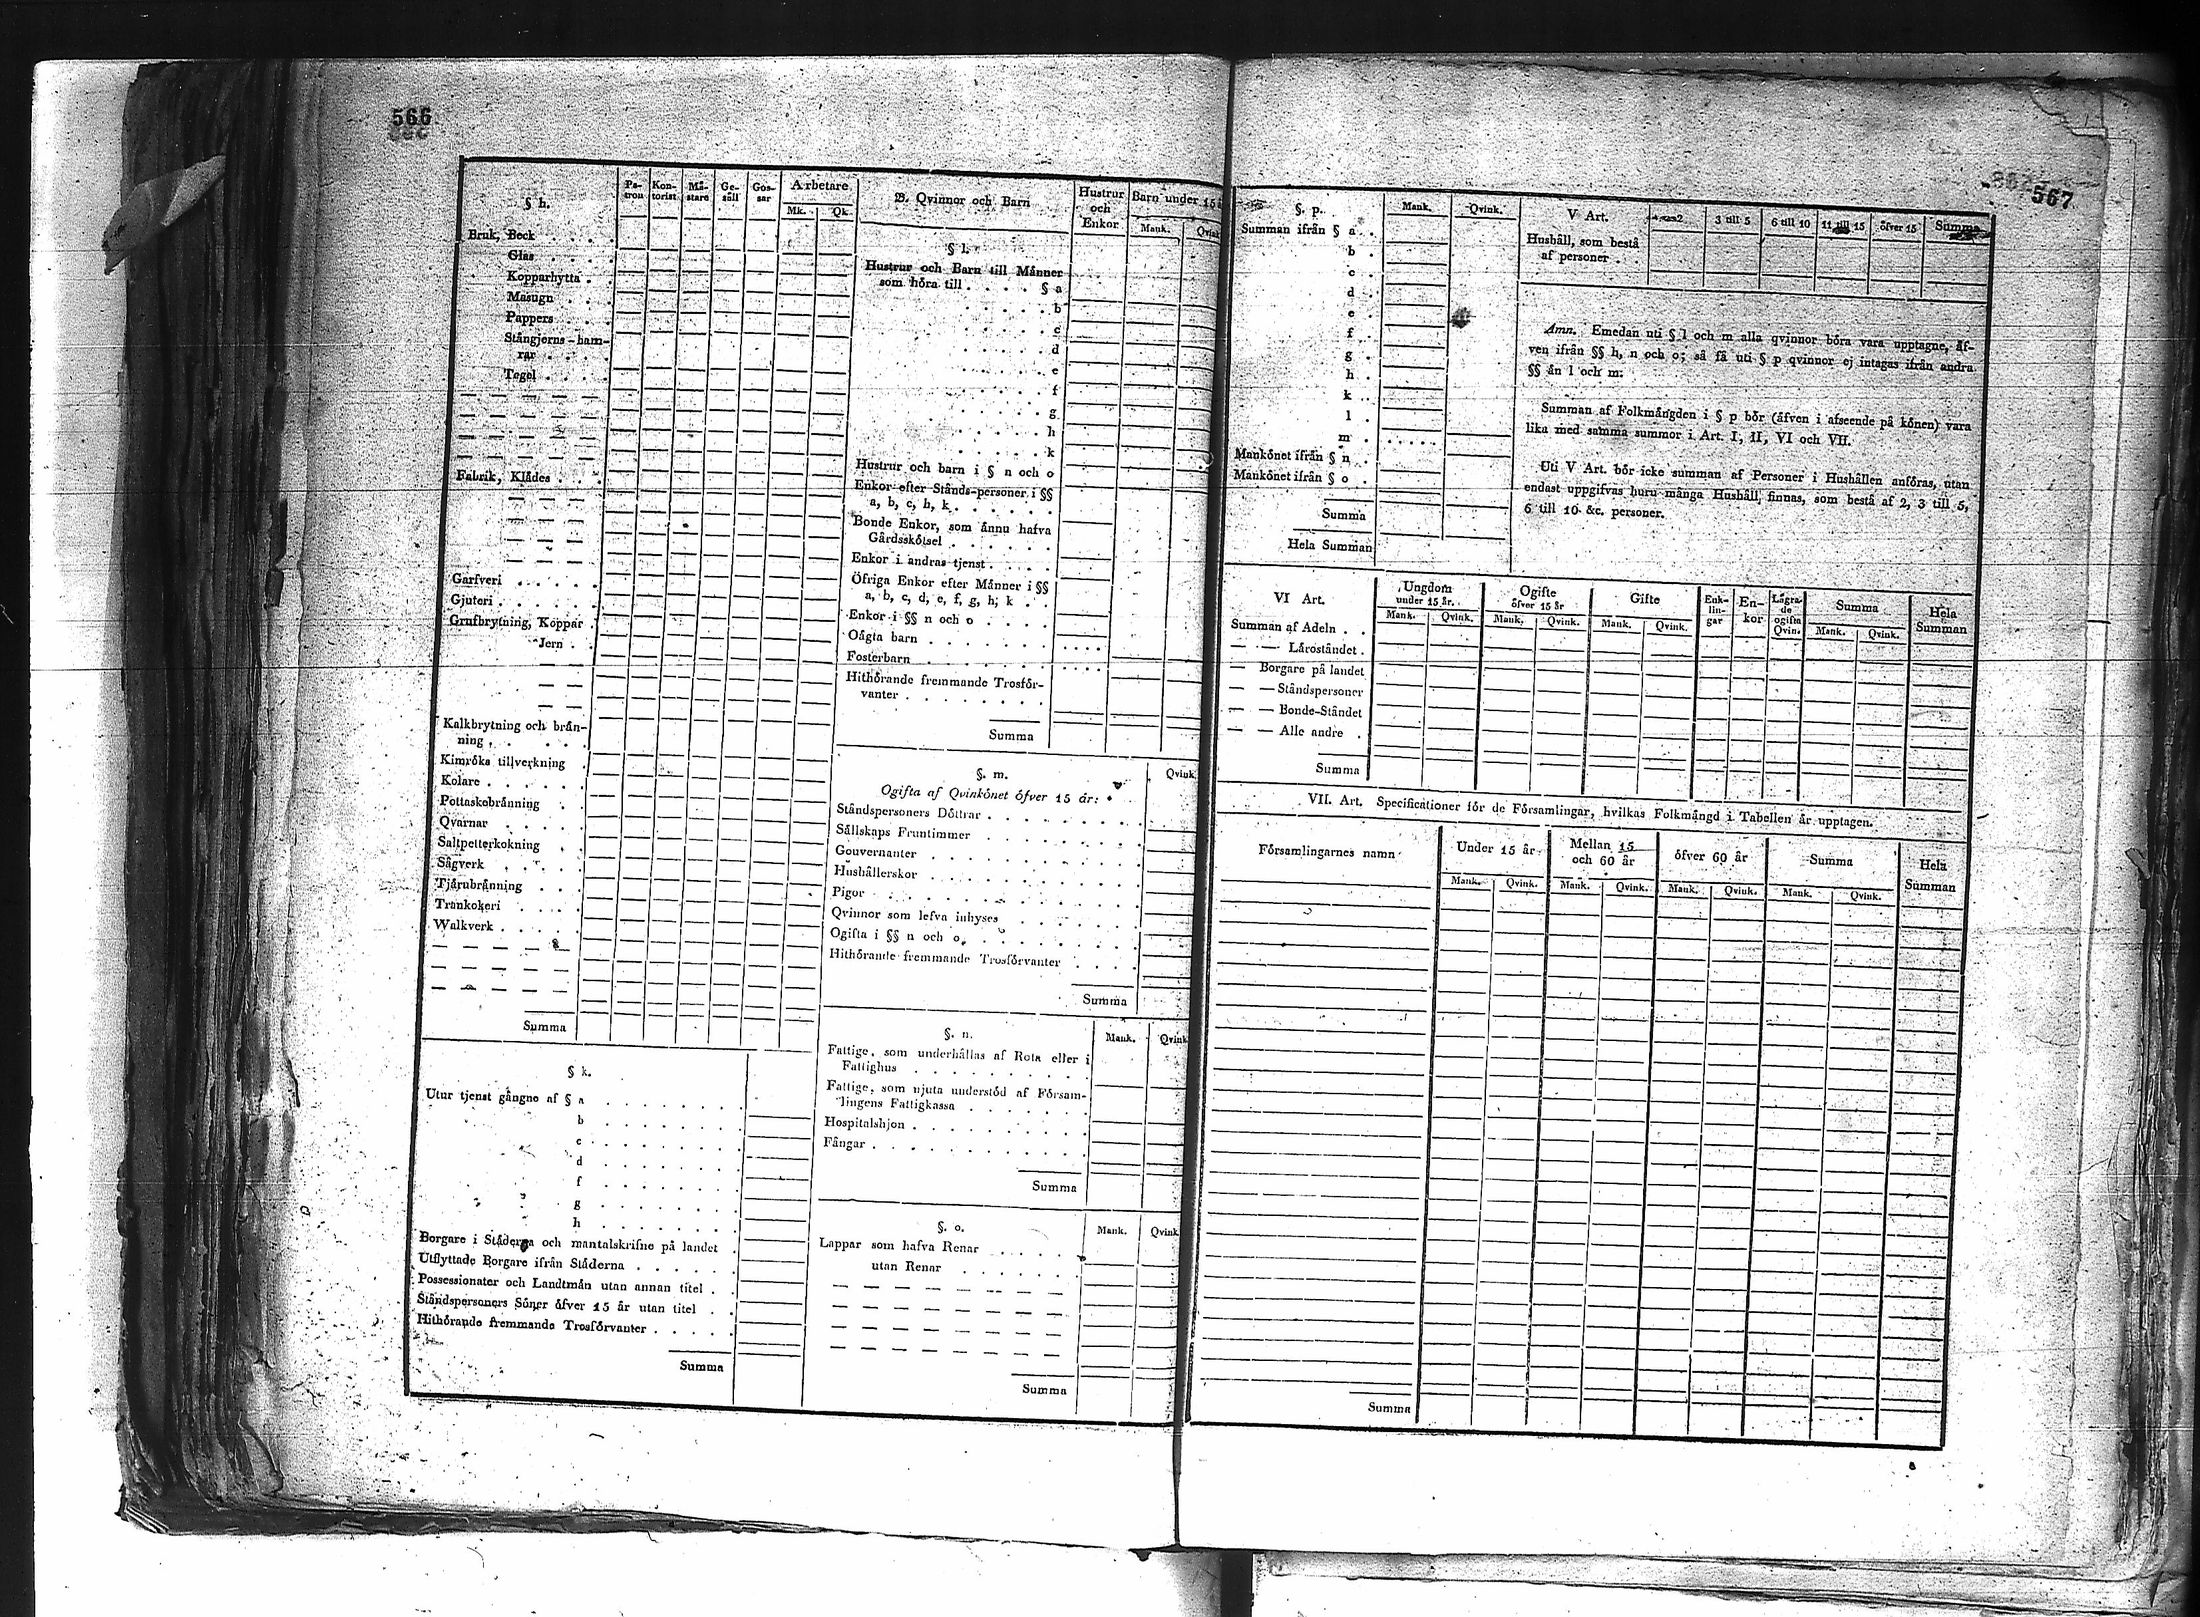 566
§ h.
Pa-
tron
Kon-
torist
Mä-
stare
Ge-
säll
Gos-
sar
Arbetare
Mk.
Qk.
Bruk, Beck . . . .
Glas . . . .
Kopparhytta . .
Masugn . . .
Pappers . . .
Stångjerns-ham-
rar . . . .
Tegel . . . .
Fabrik, Klädes . . .
Garfveri . . . . .
Gjuteri . . . . . .
Grufbrytning, Koppar .
Jern . .
Kalkbrytning och brån-
ning . . . . .
Kimröks tillverkning .
Kolare . . . . . .
Pottaskebränning . .
Qvarnar . . . . .
Saltpetterkokning . .
Sågverk . . . . .
Tjärubränning . . .
Trankokeri . . . .
Walkverk . . . . .
Summa
§ k.
Utur tjenst gångne af § a . . . . . . .
b . . . . . . .
c . . . . . . .
d . . . . . . .
f . . . . . . .
g . . . . . . .
h . . . . . . .
Borgare i Städerna och mantalskrifne på landet .
Utflyttade Borgare ifrån Städerna . . . . .
Possessionater och Landtmän utan annan titel . .
Ståndspersoners Söner öfver 15 år utan titel . .
Hithörande fremmande Trosförvanter . . . . .
Summa
B. Qvinnor och Barn
Hustrur
och
Enkor
Barn under 15
Mank.
§ l.
Hustrur och Barn till Männer
som höra till . . . . § a
. . . . . b
. . . . . c
. . . . . d
. . . . . e
. . . . . f
. . . . . g
. . . . . h
. . . . . k
Hustrur och barn i § n och o
Enkor efter Stånds-personer i §§
a, b, c, h, k . . . . . .
Bonde Enkor, som ännu hafva
Gårdsskötsel . . . . . .
Enkor i andras tjenst . . . .
Öfriga Enkor efter Männer i §§
a, b, c, d, e, f, g, h, k . .
Enkor i §§ n och o . . . . .
Oägta barn . . . . . . .
Fosterbarn . . . . . . .
Hithörande fremmande Trosför-
vanter . . . . . . .
Summa
§. m.
Qvink.
Ogifta af Qvinkönet öfver 15 år:
Ståndspersoners Döttrar . . . . . . . .
Sällskaps Fruntimmer . . . . . . . .
Gouvernanter . . . . . . . . . . .
Hushållerskor . . . . . . . . . . .
Pigor . . . . . . . . . . . . .
Qvinnor som lefva inhyses . . . . . . .
Ogifta i §§ n och o . . . . . . . . .
Hithörande fremmande Trosförvanter . . . .
Summa
§. n.
Mank.
Qvink
Fattige, som underhållas af Rota eller i
Fattighus . . . . . . . . . .
Fattige, som njuta understöd af Försam-
lingens Fattigkassa . . . . . . .
Hospitalshjon . . . . . . . . . .
Fångar . . . . . . . . . . . .
Summa
§. o.
Mank.
Qvink
Lappar som hafva Renar . . . . .
utan Renar . . . . . .
Summa
567
§. p.
Mank.
Qvink.
Summan ifrån § a . .
b .
c .
d .
e .
f .
g .
h .
k .
l .
m .
Mankönet ifrån § n .
Mankönet ifrån § o .
Summa
Hela Summan
V Art.
3 till 5
6 till 10
11 till 15
öfver 15
Summa
Hushåll, som bestå
af personer . .
Anm. Emedan uti § l och m alla qvinnor böra vara upptagne, äf-
ven ifrån §§ h, n och o; så få uti § p qvinnor ej intagas ifrån andra
§§ än l och m.
Summan af Folkmängden i § p bör (äfven i afseende på könen) vara
lika med samma summor i Art. I, II, VI och VII.
Uti V Art. bör icke summan af Personer i Hushållen anföras, utan
endast uppgifvas huru många Hushåll, finnas, som bestå af 2, 3 till 5,
6 till 10 &c. personer.
VI Art.
Ungdom
under 15 år.
Ogifte
öfver 15 år
Gifte
Enk-
lin-
gar
En-
kor
Lägra-
de
ogifta
Qvin.
Summa
Hela
Summan
Mank. Qvink. Mank. Qvink. Mank. Qvink. Mank. Qvink.
Summan af Adeln . .
— — Läroståndet .
— Borgare på landet
— — Ståndspersoner
— — Bonde-Ståndet
— — Alle andre .
Summa
VII. Art. Specificationer för de Församlingar, hvilkas Folkmängd i Tabellen är upptagen.
Församlingarnes namn
Under 15 år
Mellan 15
och 60 år
öfver 60 år
Summa
Hela
Summan
Mank. Qvink. Mank. Qvink. Mank. Qvink. Mank. Qvink.
Summa